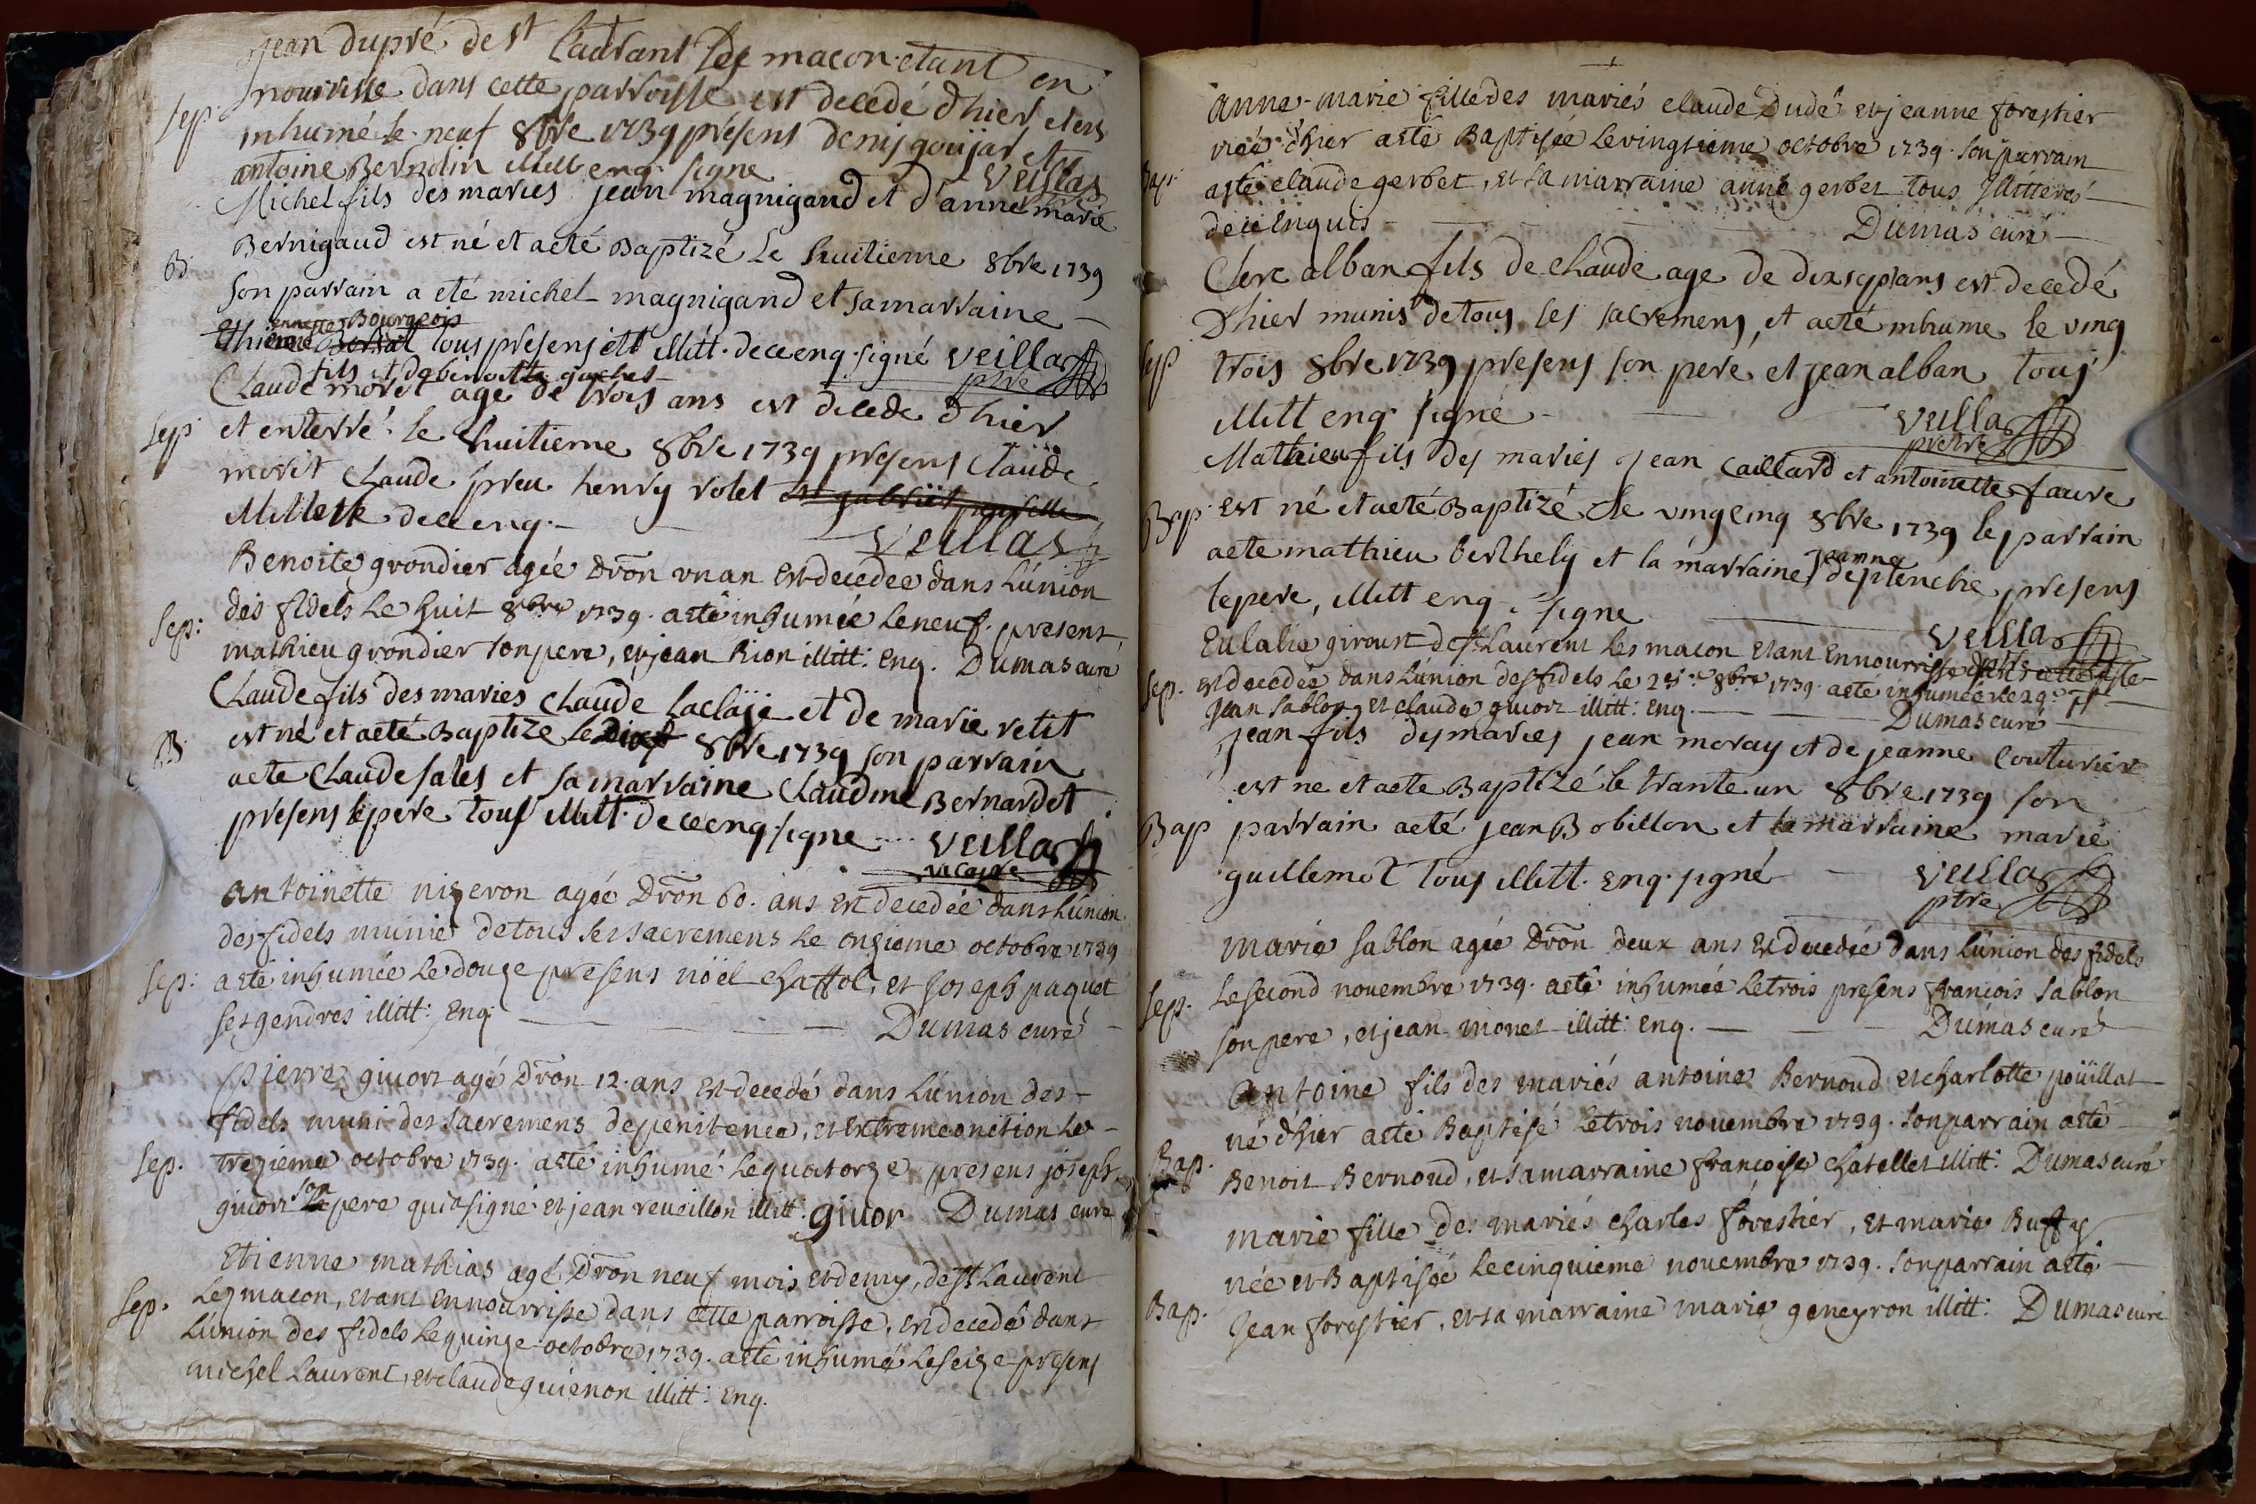 jean dupré de st Laurant les macon etant en
nourisse dans cette parroisse est decedé d'hier et est
Sep.
inhumé le neuf 8bre 1739 présens denis goujat et
antoine Bernolin illitt enq. signe Veillas
Michel fils des maries jean magnigaud et d'anne marie
B.
Bernigaud est né et a eté Baptizé le huitieme 8bre 1739
son parrain a eté michel magnigand et sa marraine
ennette Bourgeois
tous presens illitt. de ce enq. signé Veillas
ptre
fils et de benoitte
Claude moret agé de trois ans est decede d'hier
Sep
et enterré le huitieme 8bre 1739 presens Claude
moret Claude preu henry rolet
illitt de ce enq.
Veillas
Benoite grondier agée dron un an est decedée dans l'union
Sep:
des fidels le huit 8bre 1739. a eté inhumée le neuf. present
mathieu grondier son pere, et jean Rion illitt: Enq. Dumas curé
Claude fils des maries Claude laclaje et de marie retit
B.
est né et a eté Baptizé le Dix 8bre 1739 son parrain
a ete Claude sales et sa marraine Claudine Bernardet
presens le pere tous illitt. de ce enq. signe Veillas
vicaire
Antoinette nizeron agée dron 60. ans est decedée dans l'union
des fidels munie de tous ses sacremens le onzieme octobre 1739
Sep:
a eté inhumée le douze presens noël chaffol, et joseph paquet
ses gendres illitt: Enq. Dumas curé
pierre givort agé dron 12. ans est decedé dans l'union des
fidels muni des sacremens de penitence, et extremeonction le
Sep.
trezieme octobre 1739. a eté inhumé le quatorze presens joseph
son
givort pere qui a signé et jean reveillon illitt. givor Dumas curé
Etienne mathias agé dron neuf mois et demy, de st Laurent
Sep.
les macon, etant en nourrisse dans cette parroisse, est decedé dans
l'union des fidels le quinze octobre 1739. a eté inhumé le seize presens
michel Laurent, et claude guienon illitt: Enq.
Anne-marie fille des mariés claude Dudé et jeanne forestier
née d'hier a eté Baptisée le vingtieme octobre 1739. son parrain
Bap.
a eté claude gerbet, et sa marraine anne gerbet tous illitterés
de ce Enquis Dumas curé
Clerc alban fils de Claude age de dix sept ans est decedé
D'hier munis de tous les sacremens, et a eté inhume le ving
Sep
trois 8bre 1739 presens son pere et jean alban tous
illitt enq. signé Veillas
prêtre
Mathieu fils des maries jean Caillard et antoinette faure
Bap.
est né et a eté Baptizé le ving cinq 8bre 1739 le parrain
jeanne
a ete mathieu berthely et la marraine presens
le pere, illitt enq. signe Veillas
Eulalie giroust de st Laurent les macon etant en nourrisse
Sep.
est decedée dans l'union des fidels le 8bre 1739. a eté inhumée le 29.
jean sablon, et claude givort illitt: enq. Dumas curé
jean fils des maries jean moray et de jeanne Couturier
est ne et a ete Baptizé le trante un 8bre 1739 son
Bap
parrain a eté jean Bobillon et la marraine marie
guillemot tous illitt. enq. signé Veillas
ptre
marie sablon agée dron deux ans est decedée dans l'union des fidels
Sep.
le second novembre 1739. a eté inhumée le trois presens françois sablon
son pere, et jean monet illitt: enq. Dumas curé
Antoine fils des mariés antoine Bernoud et charlotte poüillat
né d'hier a eté Baptisé le trois novembre 1739. son parrain a eté
Bap.
Benoit Bernoud, et sa marraine françoise chatellet illitt: Dumas curé
marie fille des mariés charles forestier, et marie Buffy
née et Baptisée le cinquieme novembre 1739. son parrain a eté
Bap.
jean forestier, et sa marraine marie geneyron illitt: Dumas curé